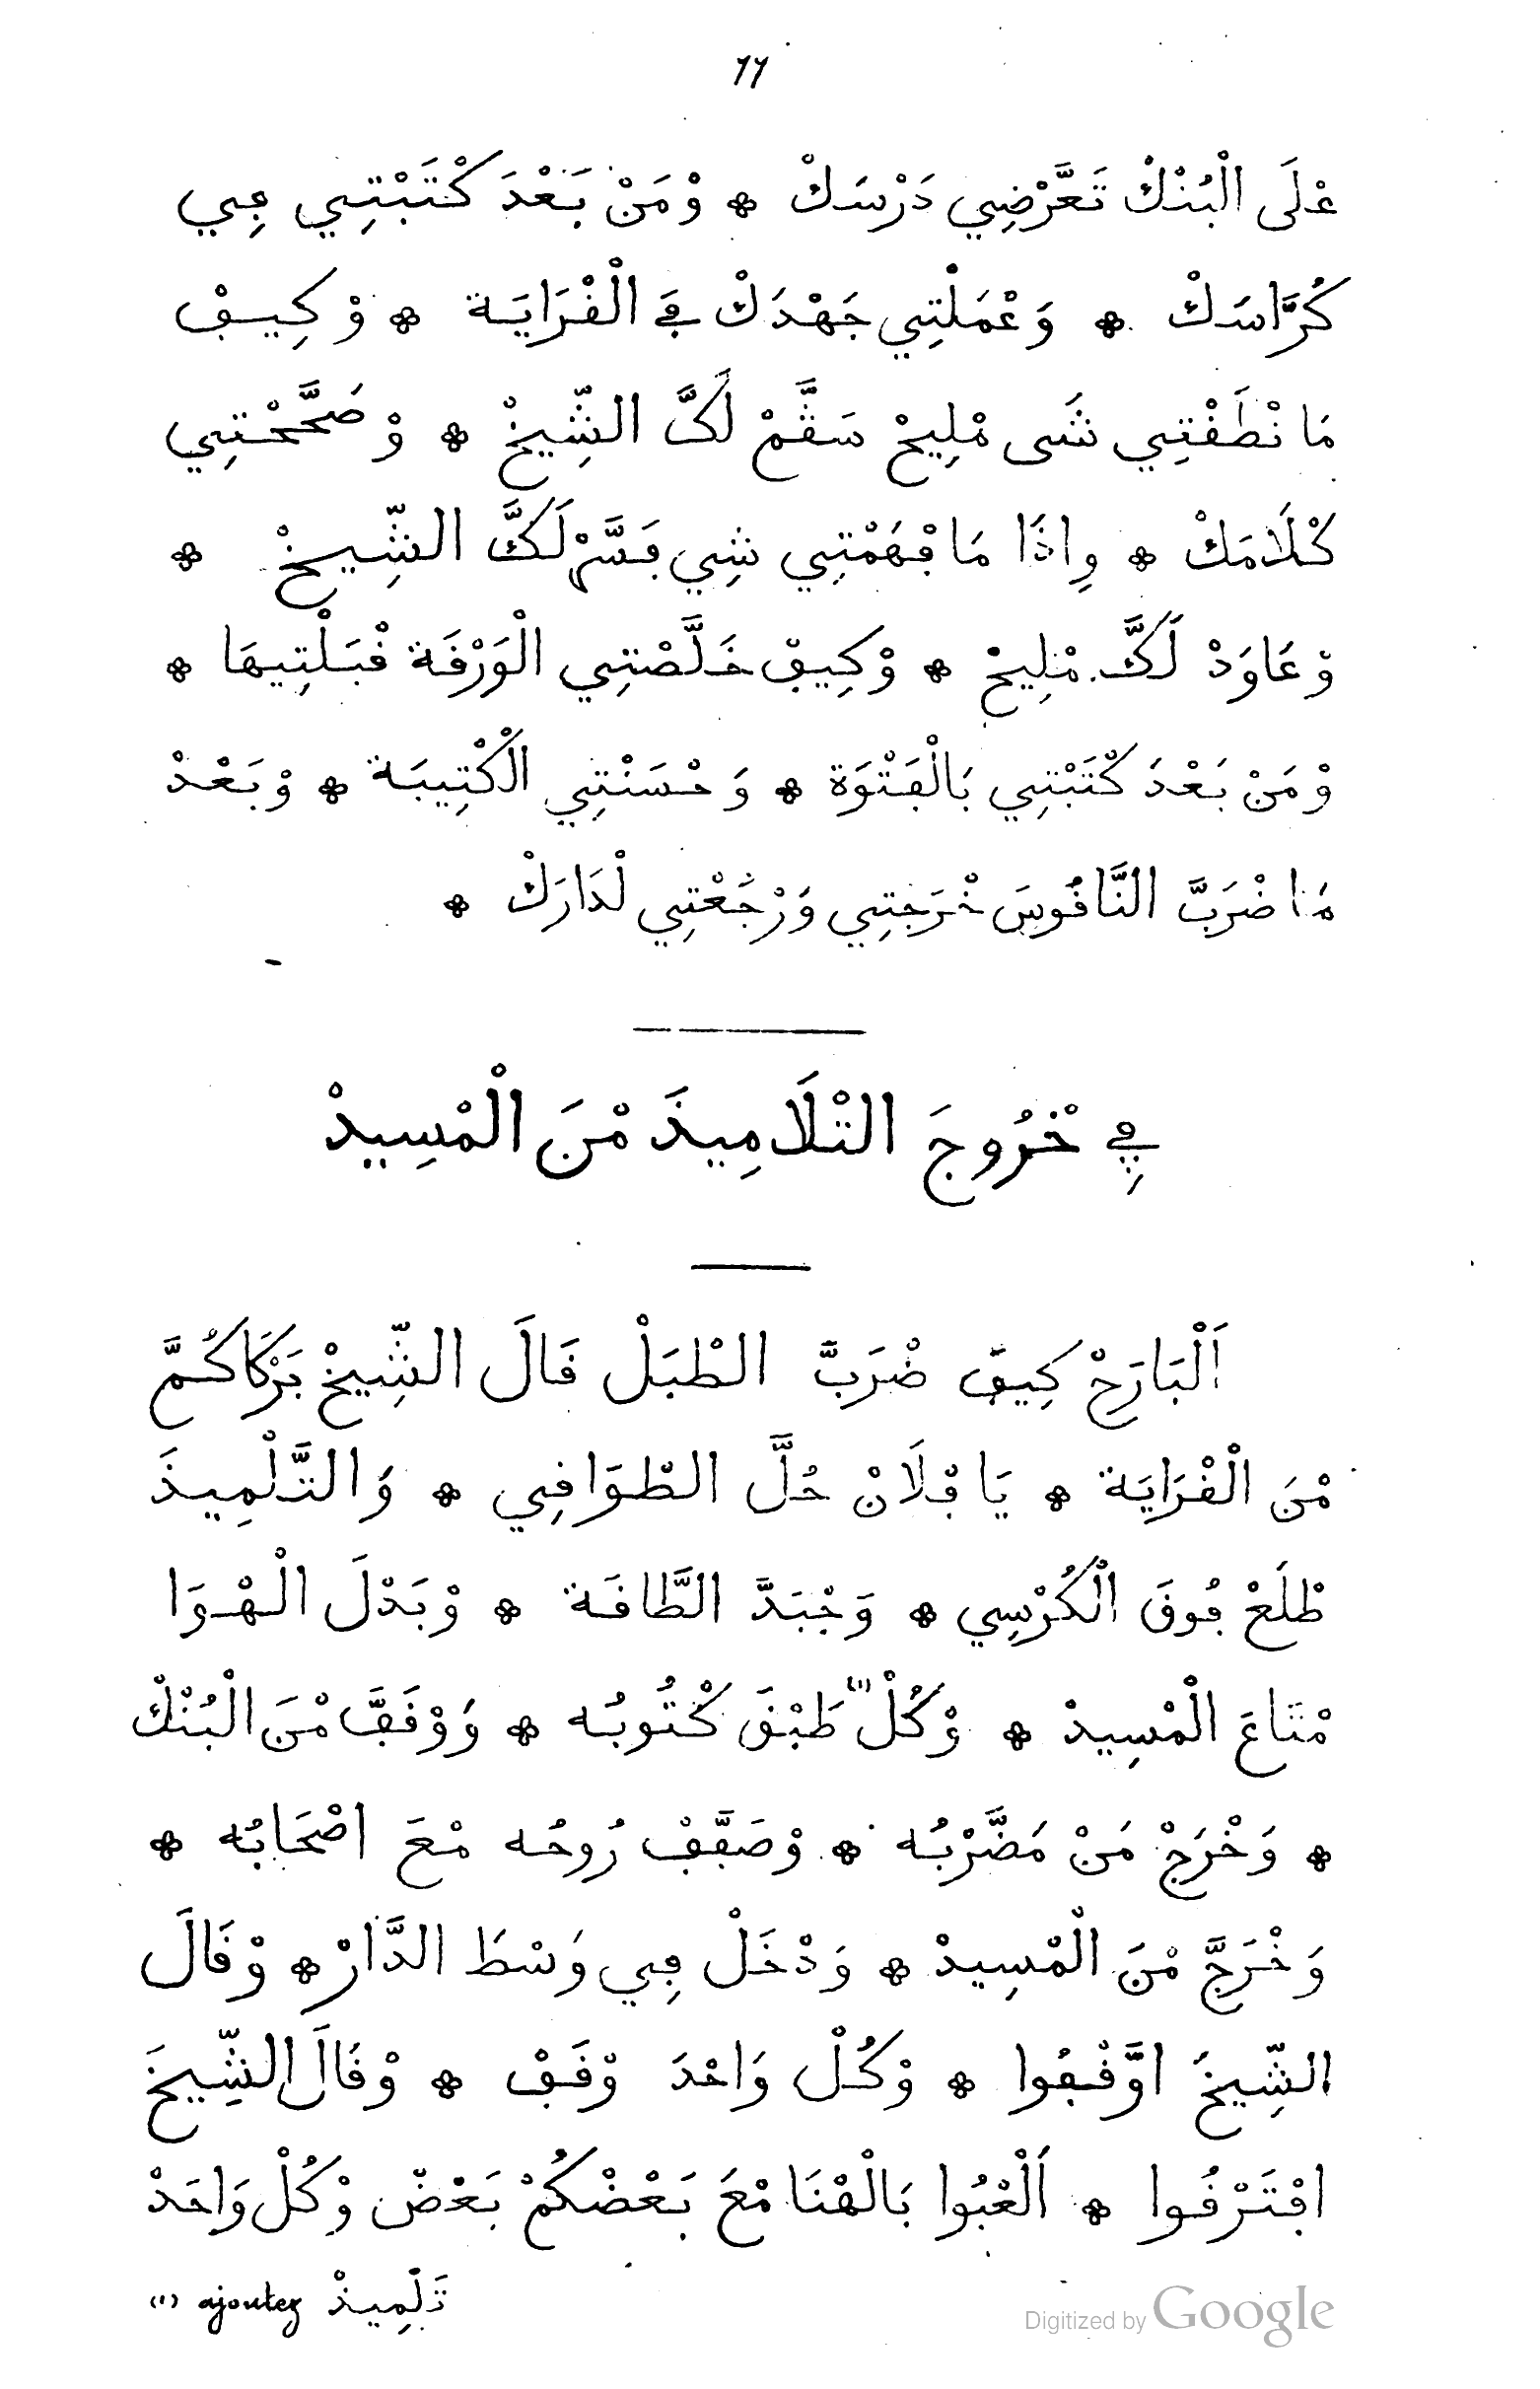 11
عْلَى الْبُنْكْ تَعَّرْضِي دَرْسَكْ * وْمَنْ بَعْدَ كْتَبْتِي فِي
كُرَّاسَكْ * وَعْمَلْتِي جَهْدَكْ فَي الْقْرَايَة * وْكِيفْ
مَا نْطَقْتِي شَى مْلِيحْ سَقَّمْ لَكَّ الشِّيخْ * وْصَحَّحْتِي
كْلَامَكْ * وِاذَا مَا فْهَمْتِي شِي فَسَّرْ لَكَّ الشِّيخْ *
وْعَاوَدْ لَكَّ مْلِيحْ * وْكِيفْ خَلَّصْتِي الْوَرْقَة قْبَلْتِيهَا *
وْمَنْ بَعْدَ كْتَبْتِي بَالْفَتْوَة * وَحْسَنْتِي الْكْتِيبَة * وْبَعْدْ
مَا ضْرَبَّ النَّاقُوسَ خْرَجتِي وَرْجَعْتِي لْدَارَكْ *
فِي خْرُوجَ التْلَامِيذَ مْنَ الْمْسِيدْ
اَلْبَارَحْ كِيفَ ضْرَبَّ الطْبَلْ قَالَ الشِّيخْ بَرْكَاكُمَّ
مْنَ الْقْرَايَة * يَا فْلَانْ حُلَّ الطْوَاقِي * وَالتَّلْمِيذَ
طْلَعْ فُوقَ الْكُرْسِي * وَجْبَدَّ الطَّاقَة * وْبَدْلَ الْهْوَا
مْتَاعَ الْمْسِيدْ * وْكُلْ (١) طَبْقَ كْتُوبُه * وَوْقَفَّ مْنَ الْبُنْكْ
* وَخْرَجْ مَنْ مَضَّرْبُه * وْصَفَّفْ رُوحُه مْعَ اصْحَابُه *
وَخْرَجَّ مْنَ الْمْسِيدْ * وَدْخَلْ فِي وَسْطَ الدَّارْ * وْقَالَ
الشِّيخَ اوَّقْفُوا * وْكُلْ وَاحْدَ وْقَفْ * وْقَالَ الشِّيخَ
افْتَرْقُوا * اَلْعْبُوا بَالْهْنَا مْعَ بَعْضْكُمْ بَعْضْ وْكُلْ وَاحَدْ
(١) ajoutez تَلْمِيذْ
Digitized by Google